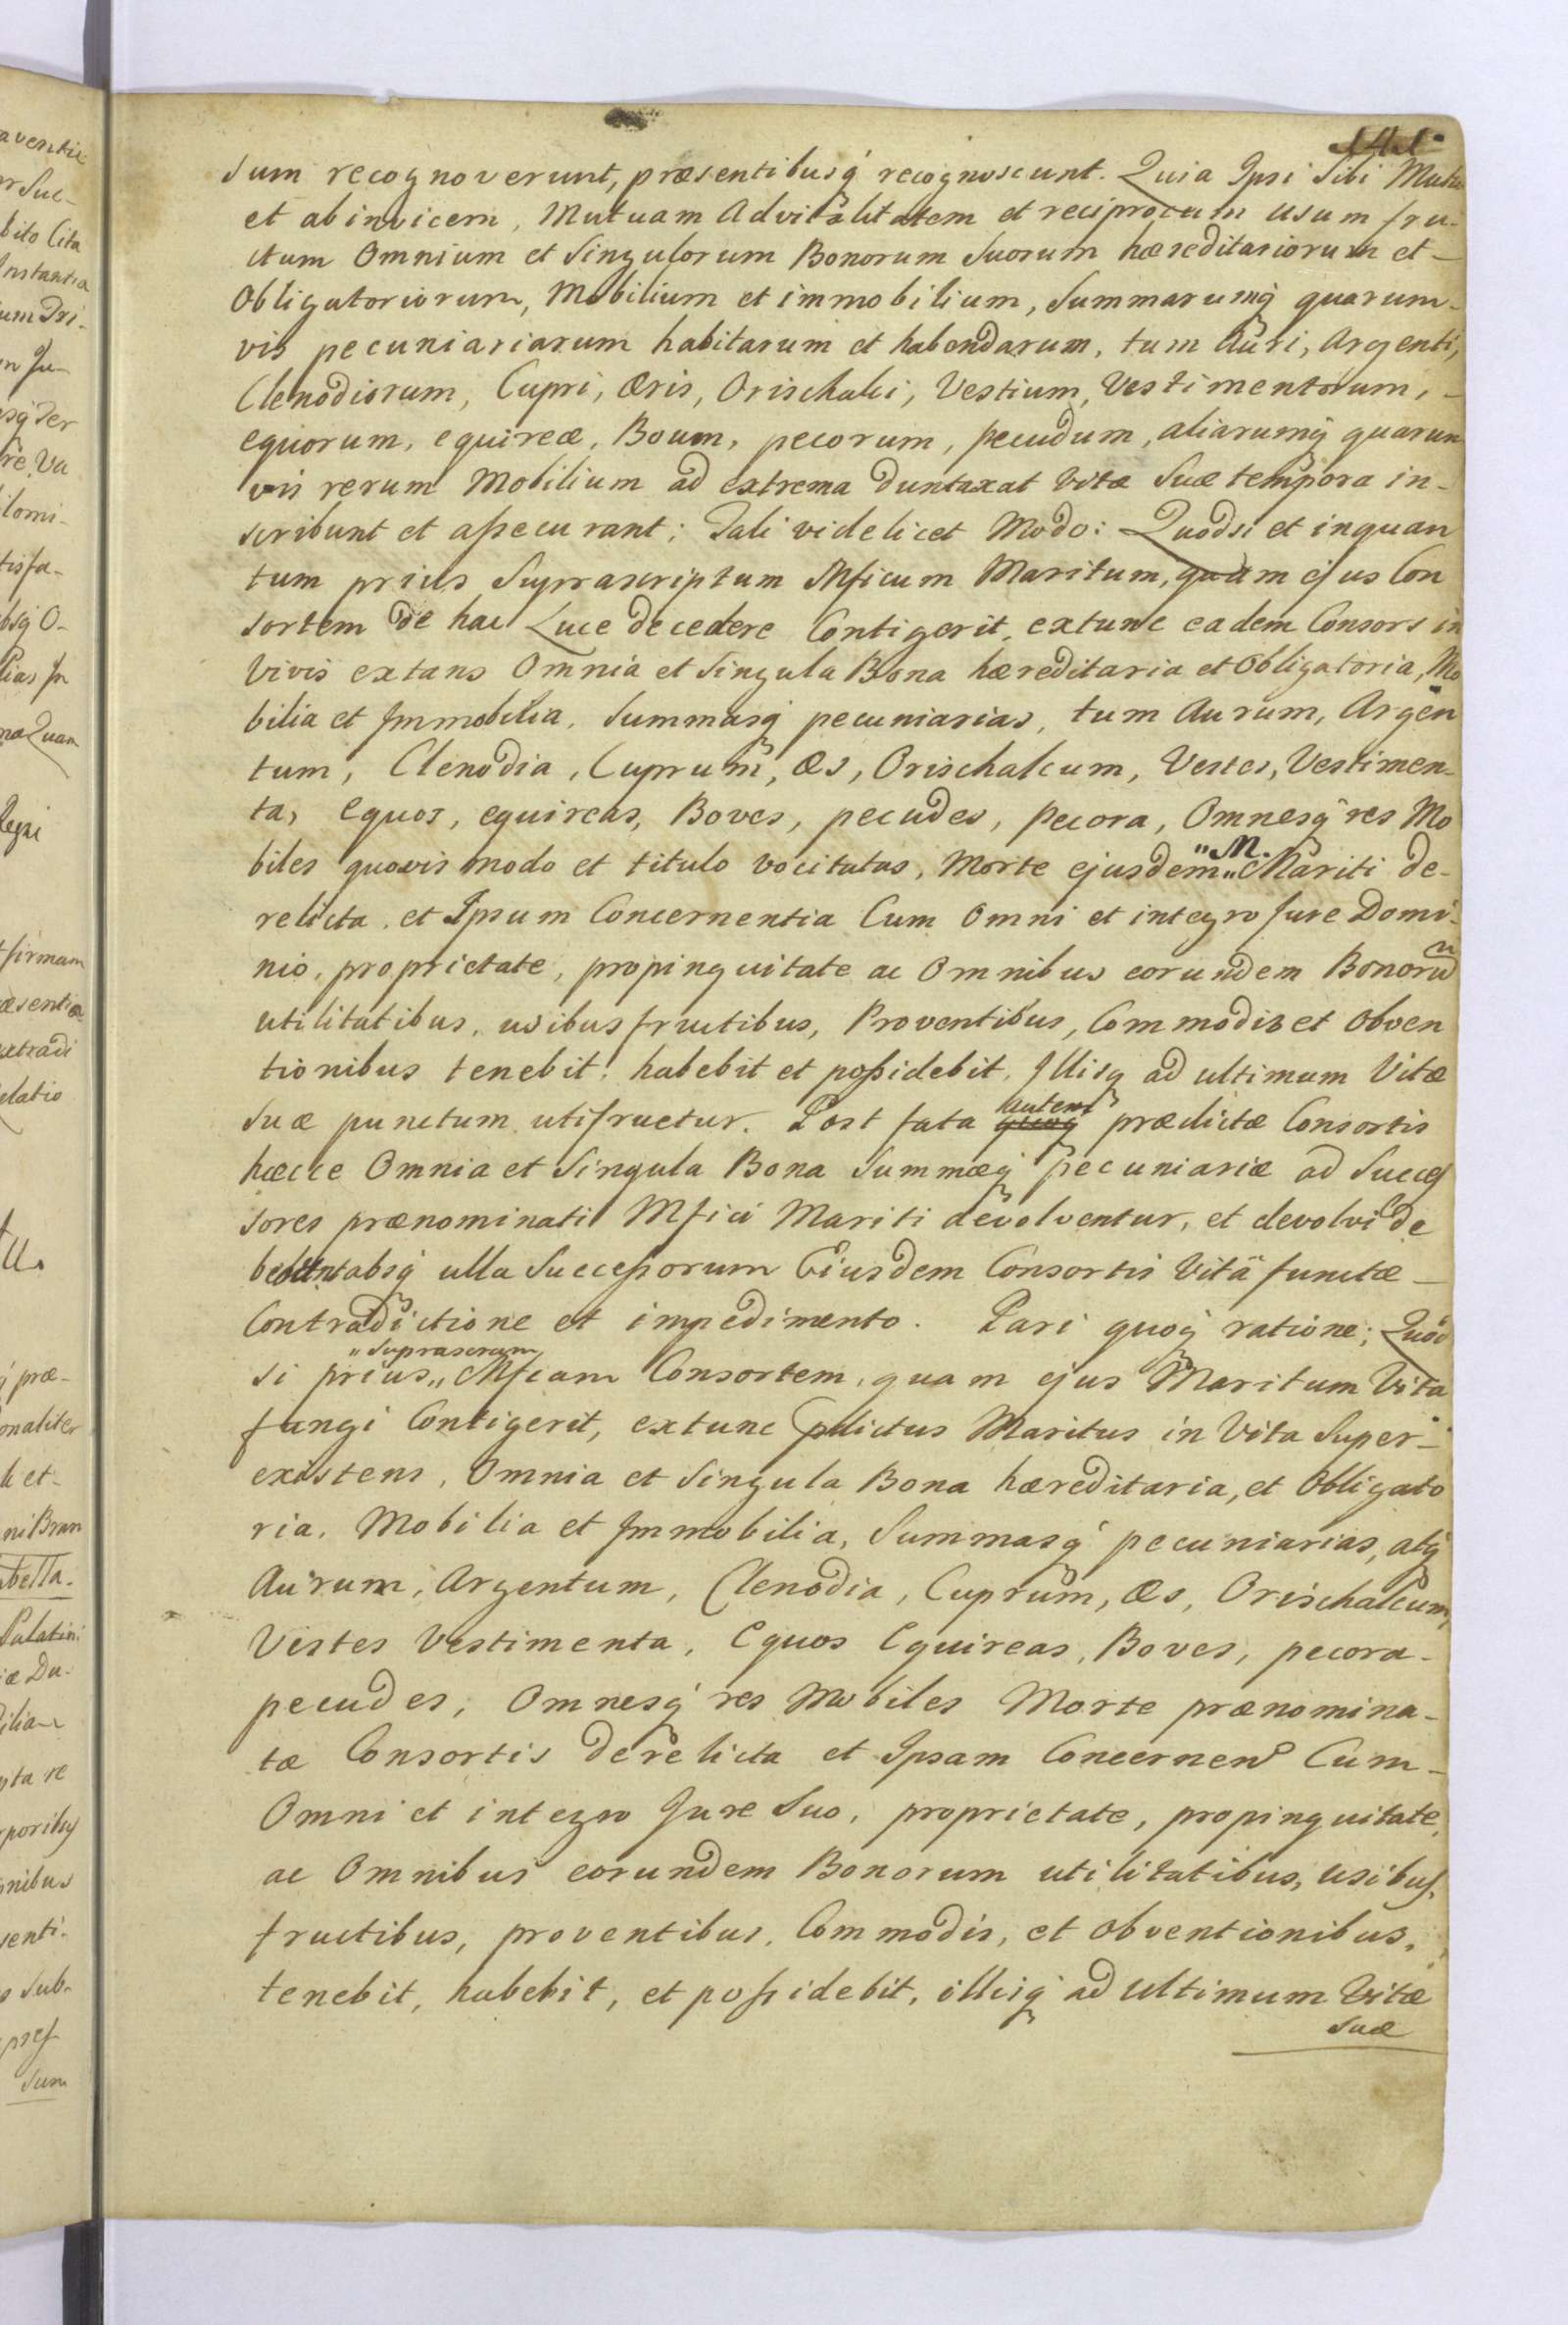 141.
sum recognoverunt, præsentibusq́ recognoscunt. Quia Ipsi Sibi Mutuo
et abinvicem, Mutuam Advitalitatem et reciprocum usum fru-
ctum Omnium et Singulorum Bonorum Suorum hæreditariorum et -
Obligatoriorum, Mobilium et immobilium, Summarumq́ quarum-
vis pecuniariarum habitarum et habendarum, tum Auri, Argenti,
Clenodiorum, Cupri, Æris, Orischalci, Vestium, Vestimentorum, -
equorum, equireæ, Boum, pecorum, pecudum, aliarumq́ quarum
vis rerum Mobilium ad extrema duntaxat Vitæ Suæ tempora in-
scribunt et assecurant; Tali videlicet Modo: Quodsi et inquan
tum prius Suprascriptum Mficum Maritum, quam ejus Con
sortem de hac Luce decedere Contigerit, extunc eadem Consors in
Vivis extans Omnia et Singula Bona hæreditaria et Obligatoria, Mo
bilia et Immobilia, Summasq́ pecuniarias, tum Aurum, Argen
tum, Clenodia, Cuprum, Æs, Orischalcum, Vestes, Vestimen-
ta, equos, equireas, Boves, pecudes, pecora, Omnesq́ res Mo
biles quovis modo et titulo vocitatas, Morte ejusdem „M. Mariti de-
relicta, et Ipsum Concernentia Cum Omni et integro Jure Domi-
nio, proprietate, propinquitate ac Omnibus eorundem Bonorū
utilitatibus, usibusfructibus, Proventibus, Commodis et Obven
tionibus tenebit, habebit et possidebit, Illisq́ ad ultimum Vitæ
Suæ punctum utifruetur. Post fata quoq́ autem prædictæ Consortis
hæcce Omnia et Singula Bona Summæq́ pecuniariæ ad Succes
sores prænominati Mfici Mariti devolventur, et devolvi de
bebunt absq́ ulla Successorum Eiusdem Consortis Vitâ functæ -
Contradictione et impedimento. Pari quoq́ ratione; Quod
si prius „Suprascram „ Mficam Consortem, quam ejus Maritum Vita
fungi Contigerit, extunc pdictus Maritus in Vita Super-
existens, Omnia et Singula Bona hæreditaria, et Obligato
ria, Mobilia et Immobilia, Summasq́ pecuniarias, atq́
Aurum, Argentum, Clenodia, Cuprum, Æs, Orischalcum,
Vestes Vestimenta, Equos Equireas, Boves, pecora -
pecudes, Omnesq́ res Mobiles Morte prænomina-
tæ Consortis derelicta et Ipsam Concernen Cum -
Omni et integro Jure Suo, proprietate, propinquitate,
ac Omnibus eorundem Bonorum utilitatibus, usibus,
fructibus, proventibus, Commodis, et obventionibus,
tenebit, habebit, et possidebit, illisq́ ad ultimum Vitæ
Suæ